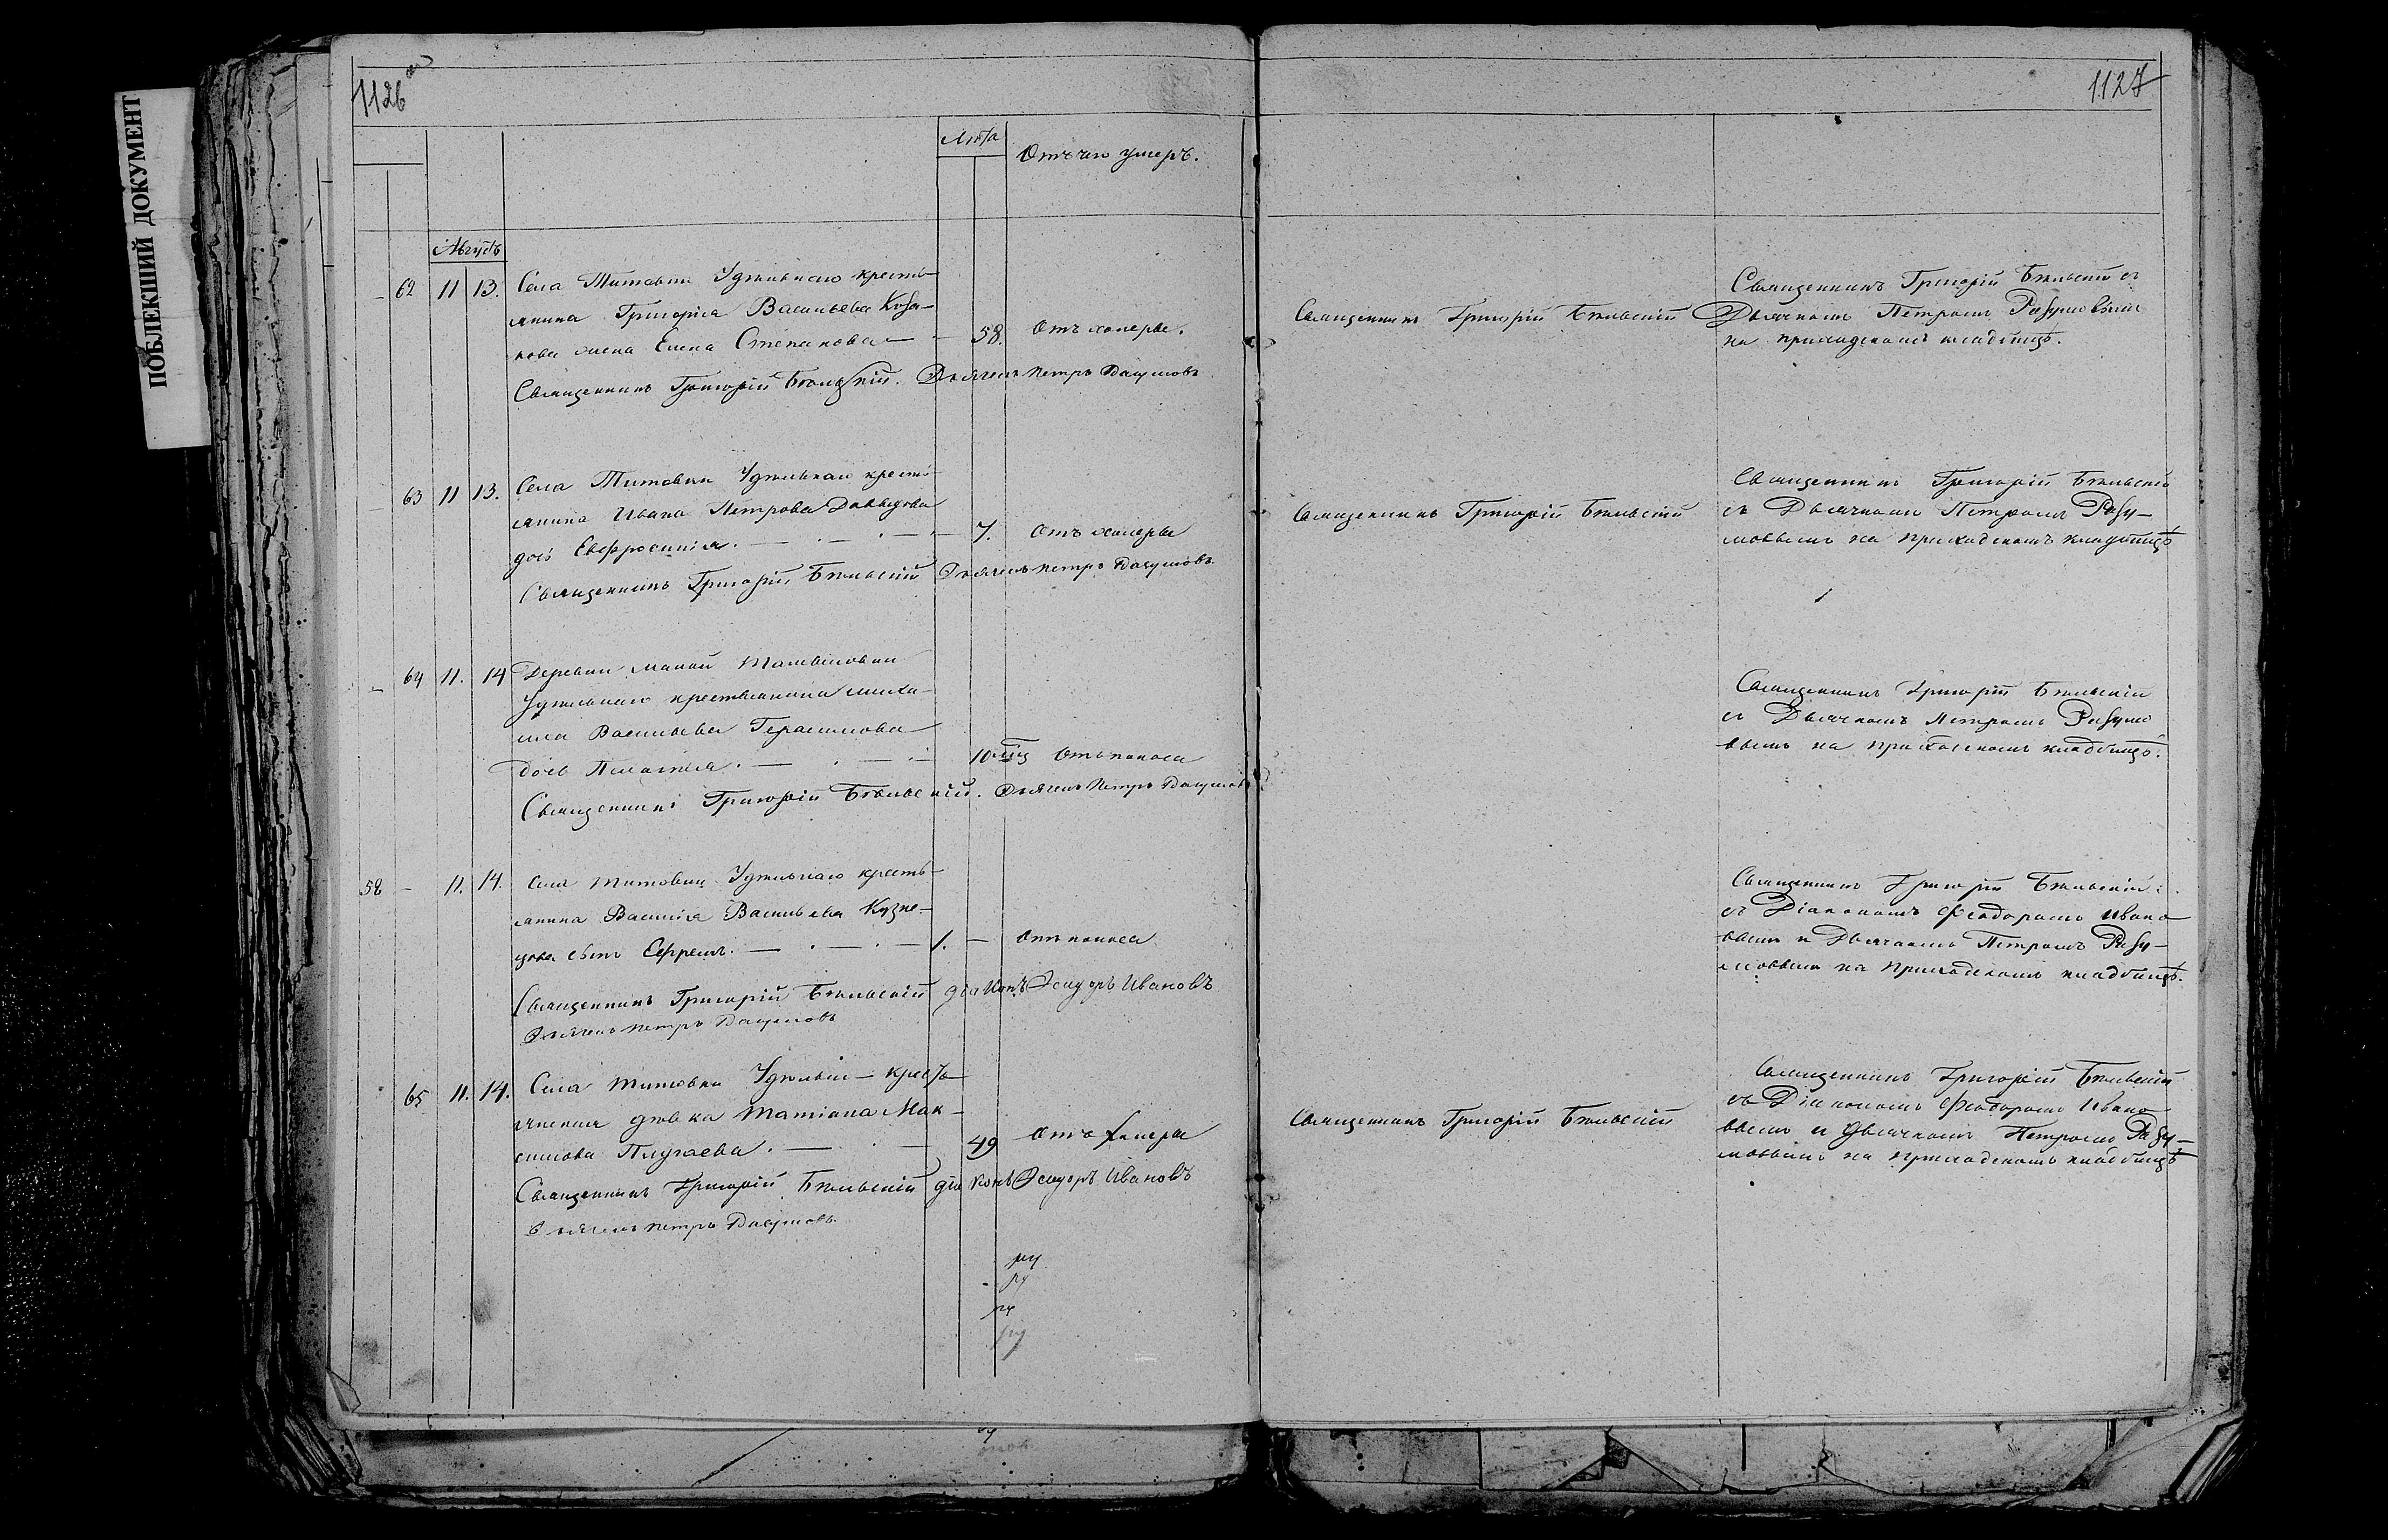 ПОБЛЕКШИЙ ДОКУМЕНТ
1126
1127
Лѣта
Отъ чего умеръ.
Августъ
62 11 13. Села Титовки Удѣльнаго кресть-
янина Григорія Васильева Коза-
кова жена Елена Степанова — 58. Отъ холеры.
Священникъ Григорій Бѣльскій. Дьячекъ Петръ Разумовъ
63 11 13. Села Титовки Удѣльнаго кресть-
янина Ивана Петрова Давыдова
дочь Евфросинія. — 7. Отъ холеры
Священникъ Григорій Бѣльскій Дьячекъ Петръ Разумовъ
64 11. 14 Деревни малой
Удѣльнаго крестьянина Миха-
ила Васильева Герасимова
дочь Пелагія. — 10 мѣц Отъ поноса
Священникъ Григорій Бѣльскій. Дьячекъ Петръ Разумовъ
58 - 11. 14. Села Титовки Удѣльнаго кресть-
янина Василія Васильева Кузне-
цова сынъ Ефремъ. — 1. — Отъ поноса
Священникъ Григорій Бѣльскій діаконъ Ѳеодоръ Ивановъ
Дьячекъ Петръ Разумовъ
65 11. 14. Села Титовки Удѣльная кресть-
янская дѣвка Татіана Мак-
симова Пугаева. — 49 Отъ холеры
Священникъ Григорій Бѣльскій діаконъ Ѳеодоръ Ивановъ
Дьячекъ Петръ Разумовъ
Священникъ Григорій Бѣльскій
Священникъ Григорій Бѣльскій съ
Дьячкомъ Петромъ Разумовымъ
на приходскомъ кладбищѣ.
Священникъ Григорій Бѣльскій
Священникъ Григорій Бѣльскій
съ Дьячкомъ Петромъ Разу-
мовымъ на приходскомъ кладбищѣ
Священникъ Григорій Бѣльскій
съ Дьячкомъ Петромъ Разумо
вымъ на приходскомъ кладбищѣ.
Священникъ Григорій Бѣльскій
съ Діакономъ Ѳеодоромъ Ивано
вымъ и Дьячкомъ Петромъ Разу-
мовымъ на приходскомъ кладбищѣ.
Священникъ Григорій Бѣльскій
Священникъ Григорій Бѣльскій
съ Діакономъ Ѳеодоромъ Ивано
вымъ и Дьячкомъ Петромъ Разу-
мовымъ на приходскомъ кладбищѣ